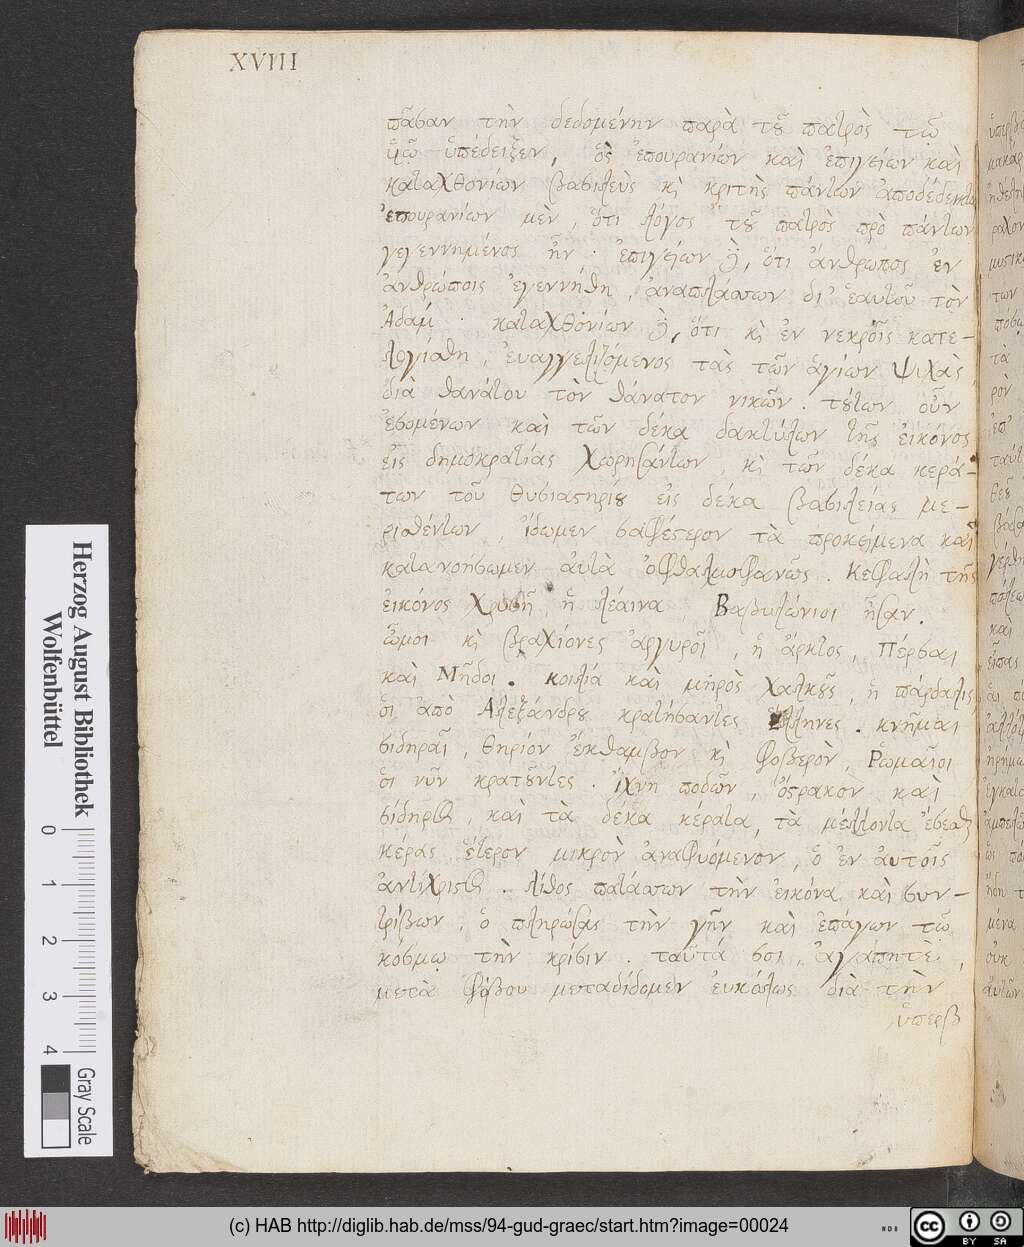 XVIII
πᾶσαν τὴν δεδομένην παρὰ τȣ͂ πατρὸς τῶ
ὑιῶ ὑπέδειξεν, ὃς ἐπουρανίων καὶ ἐπιγείων καὶ
καταχθονίων βασιλεὺς κὶ κριτὴς πάντων ἀποδέδεικται
ἐπουρανίων μὲν, ὅτι λόγος τȣ͂ πατρὸς πρὸ πάντων
γεγεννημένος ἦν · ἐπιγείων δὲ, ὅτι ἄνθρωπος ἐν
ἀνθρώποις ἐγεννήθη, ἀναπλάσσων δι' ἑαυτοῦ τὸν
Ἀδαμ · καταχθονίων δὲ, ὅτι κὶ ἐν νεκροῖς κατε-
λογίσθη, ἐυαγγελιζόμενος τὰς τῶν ἁγίων ψυχὰς
διὰ θανάτου τὸν θάνατον νικῶν. τȣ́των οὖν
ἐσομένων καὶ τῶν δέκα δακτύλων τῆς ἐικόνος
εἰς δημοκρατίας χωρησάντων, κὶ τῶν δέκα κερά-
των τοῦ θυσιαστηρίȣ εἰς δέκα βασιλείας με-
ρισθέντων, ἴδωμεν σαφέστερον τὰ προκείμενα καὶ
κατανοήσωμεν ἀυτὰ ὀφθαλμοφανῶς. Κεφαλὴ τῆς
ἐικόνος χρυσῆ ἡ λέαινα, Βαβυλώνιοι ἦσαν.
ὦμοι κὶ βραχίονες ἀργυροῖ, ἡ ἄρκτος, Πέρσαι
καὶ Μῆδοι. κοιλία καὶ μηρὸς χαλκȣ͂ς, ἡ πάρδαλις
ὁι ἀπὸ Ἀλεξάνδρȣ κρατήσαντες Ἕλληνες. κνῆμαι
σιδηραῖ, θηρίον ἔκθαμβον κὶ φοβερὸν, Ῥωμαῖοι
ὁι νῦν κρατȣ͂ντες. ἴχνη ποδῶν, ὄστρακον καὶ
σίδηρος, καὶ τὰ δέκα κέρατα, τὰ μέλλοντα ἔσεσθαι
κέρας ἕτερον μικρὸν ἀναφυόμενον, ὁ ἐν ἀυτοῖς
ἀντίχριστος. λίθος πατάσσων τὴν ἐικόνα καὶ συν-
τρίβων, ὁ πληρώσας τὴν γῆν καὶ ἐπάγων τῶ
κόσμῳ τὴν κρίσιν. ταῦτά σοι, ἀγαπητὲ,
μετὰ φόβου μεταδίδομεν ἐυκόλως διὰ τὴν
ὑπερβ
Herzog August Bibliothek
Wolfenbüttel
0 1 2 3 4
Gray Scale
(c) HAB http://diglib.hab.de/mss/94-gud-graec/start.htm?image=00024
WDB
cc BY SA